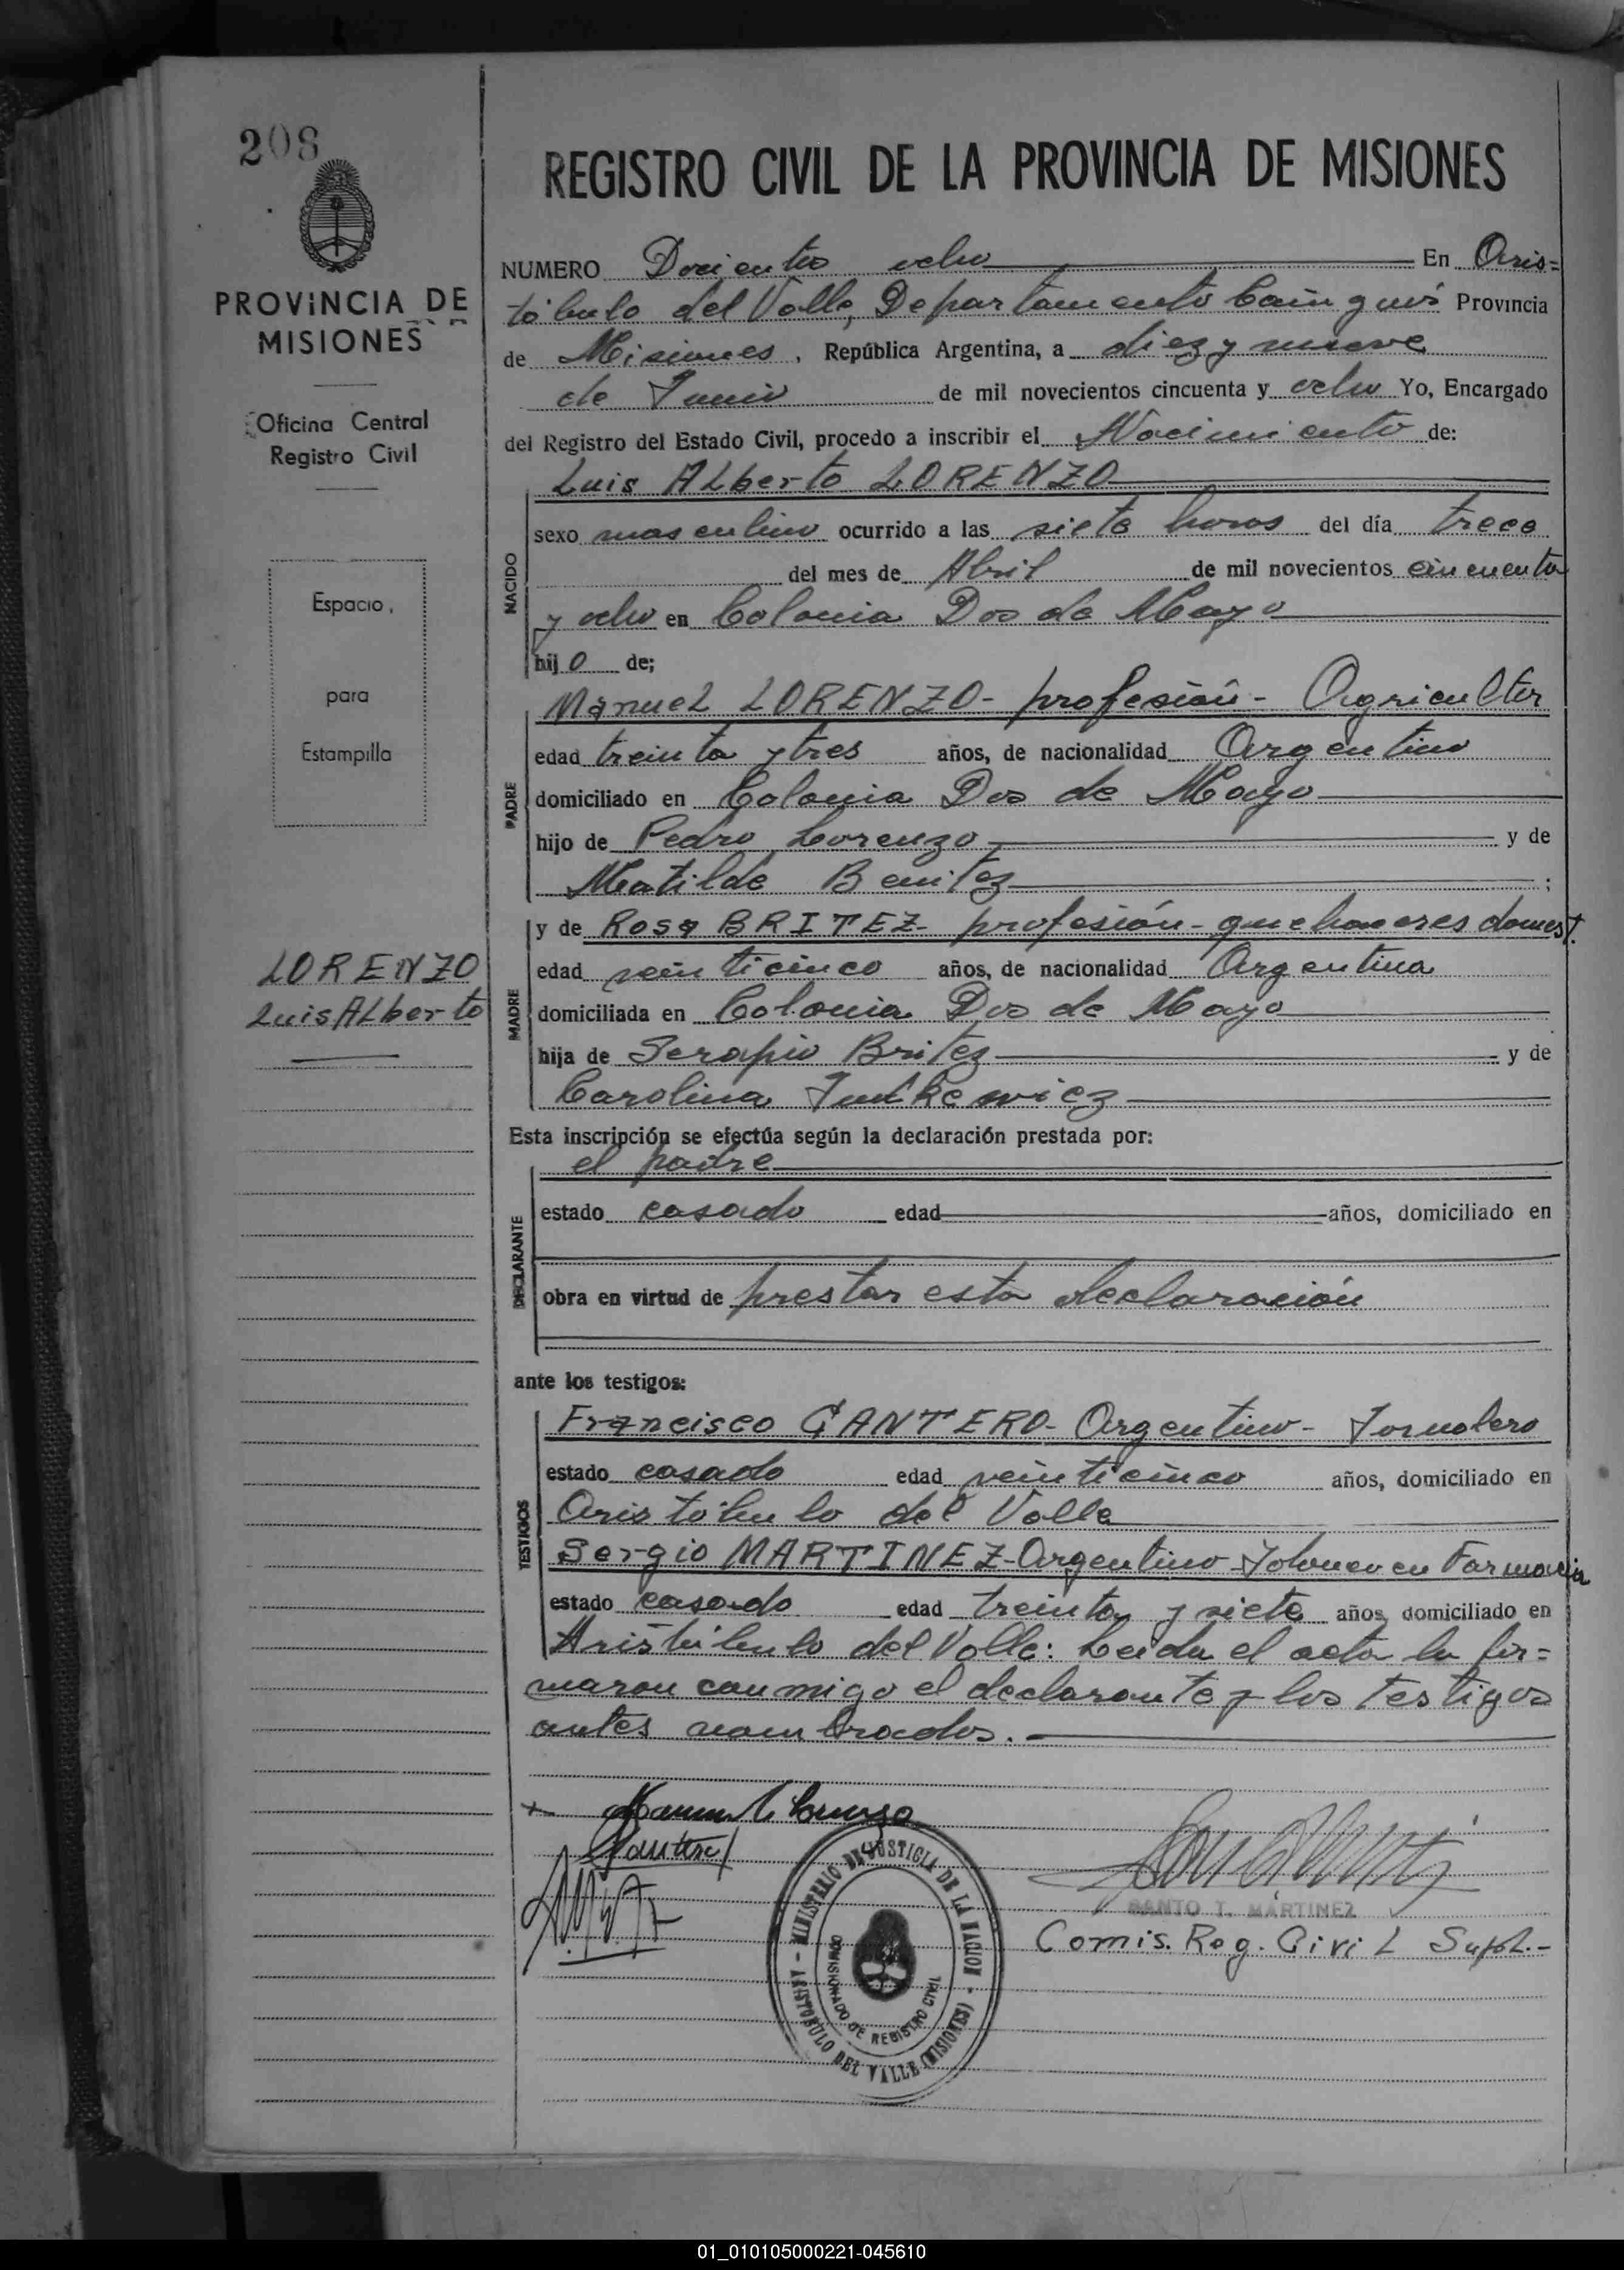 208
PROVINCIA DE
MISIONES
Oficina Central
Registro Civil
Espacio
para
Estampilla
LORENZO
Luis Alberto
REGISTRO CIVIL DE LA PROVINCIA DE MISIONES
NUMERO Docientos ocho En Aris=
tóbulo del Valle, Departamento Cainguás Provincia
de Misiones, República Argentina, a diez y nueve
de Junio de mil novecientos cincuenta y ocho Yo, Encargado
del Registro del Estado Civil, procedo a inscribir el Nacimiento de:
Luis Alberto LORENZO
NACIDO
sexo masculino ocurrido a las siete horas del día trece
del mes de Abril de mil novecientos cincuenta
y ocho en Colonia Dos de Mayo
hijo de;
PADRE
Manuel LORENZO- profesión- Agricultor
edad treinta y tres años, de nacionalidad Argentino
domiciliado en Colonia Dos de Mayo
hijo de Pedro Lorenzo y de
Matilde Benitez ;
MADRE
y de Rosa BRITEZ- profesión- quehaceres domest.
edad veinticinco años, de nacionalidad Argentina
domiciliada en Colonia Dos de Mayo
hija de Serapio Britez y de
Carolina
Esta inscripción se efectúa según la declaración prestada por:
DECLARANTE
el padre
estado casado edad años, domiciliado en
obra en virtud de prestar esta declaración
ante los testigos:
TESTIGOS
Francisco CANTERO- Argentino- Jornalero
estado casado edad veinticinco años, domiciliado en
Aristóbulo del Valle
Sergio MARTINEZ- Argentino- en Farmacia
estado casado edad treinta y siete años, domiciliado en
Aristóbulo del Valle: Leida el acta la fir=
maron conmigo el declarante y los testigos
antes nombrados.-
Manuel Lorenzo
MINISTERIO DE JUSTICIA DE LA NACION - ARISTOBULO DEL VALLE (MISIONES) -
COMISIONADO DE REGISTRO CIVIL
SANTO T. MARTINEZ
Comis. Reg. Civil Supl.-
01_010105000221-045610